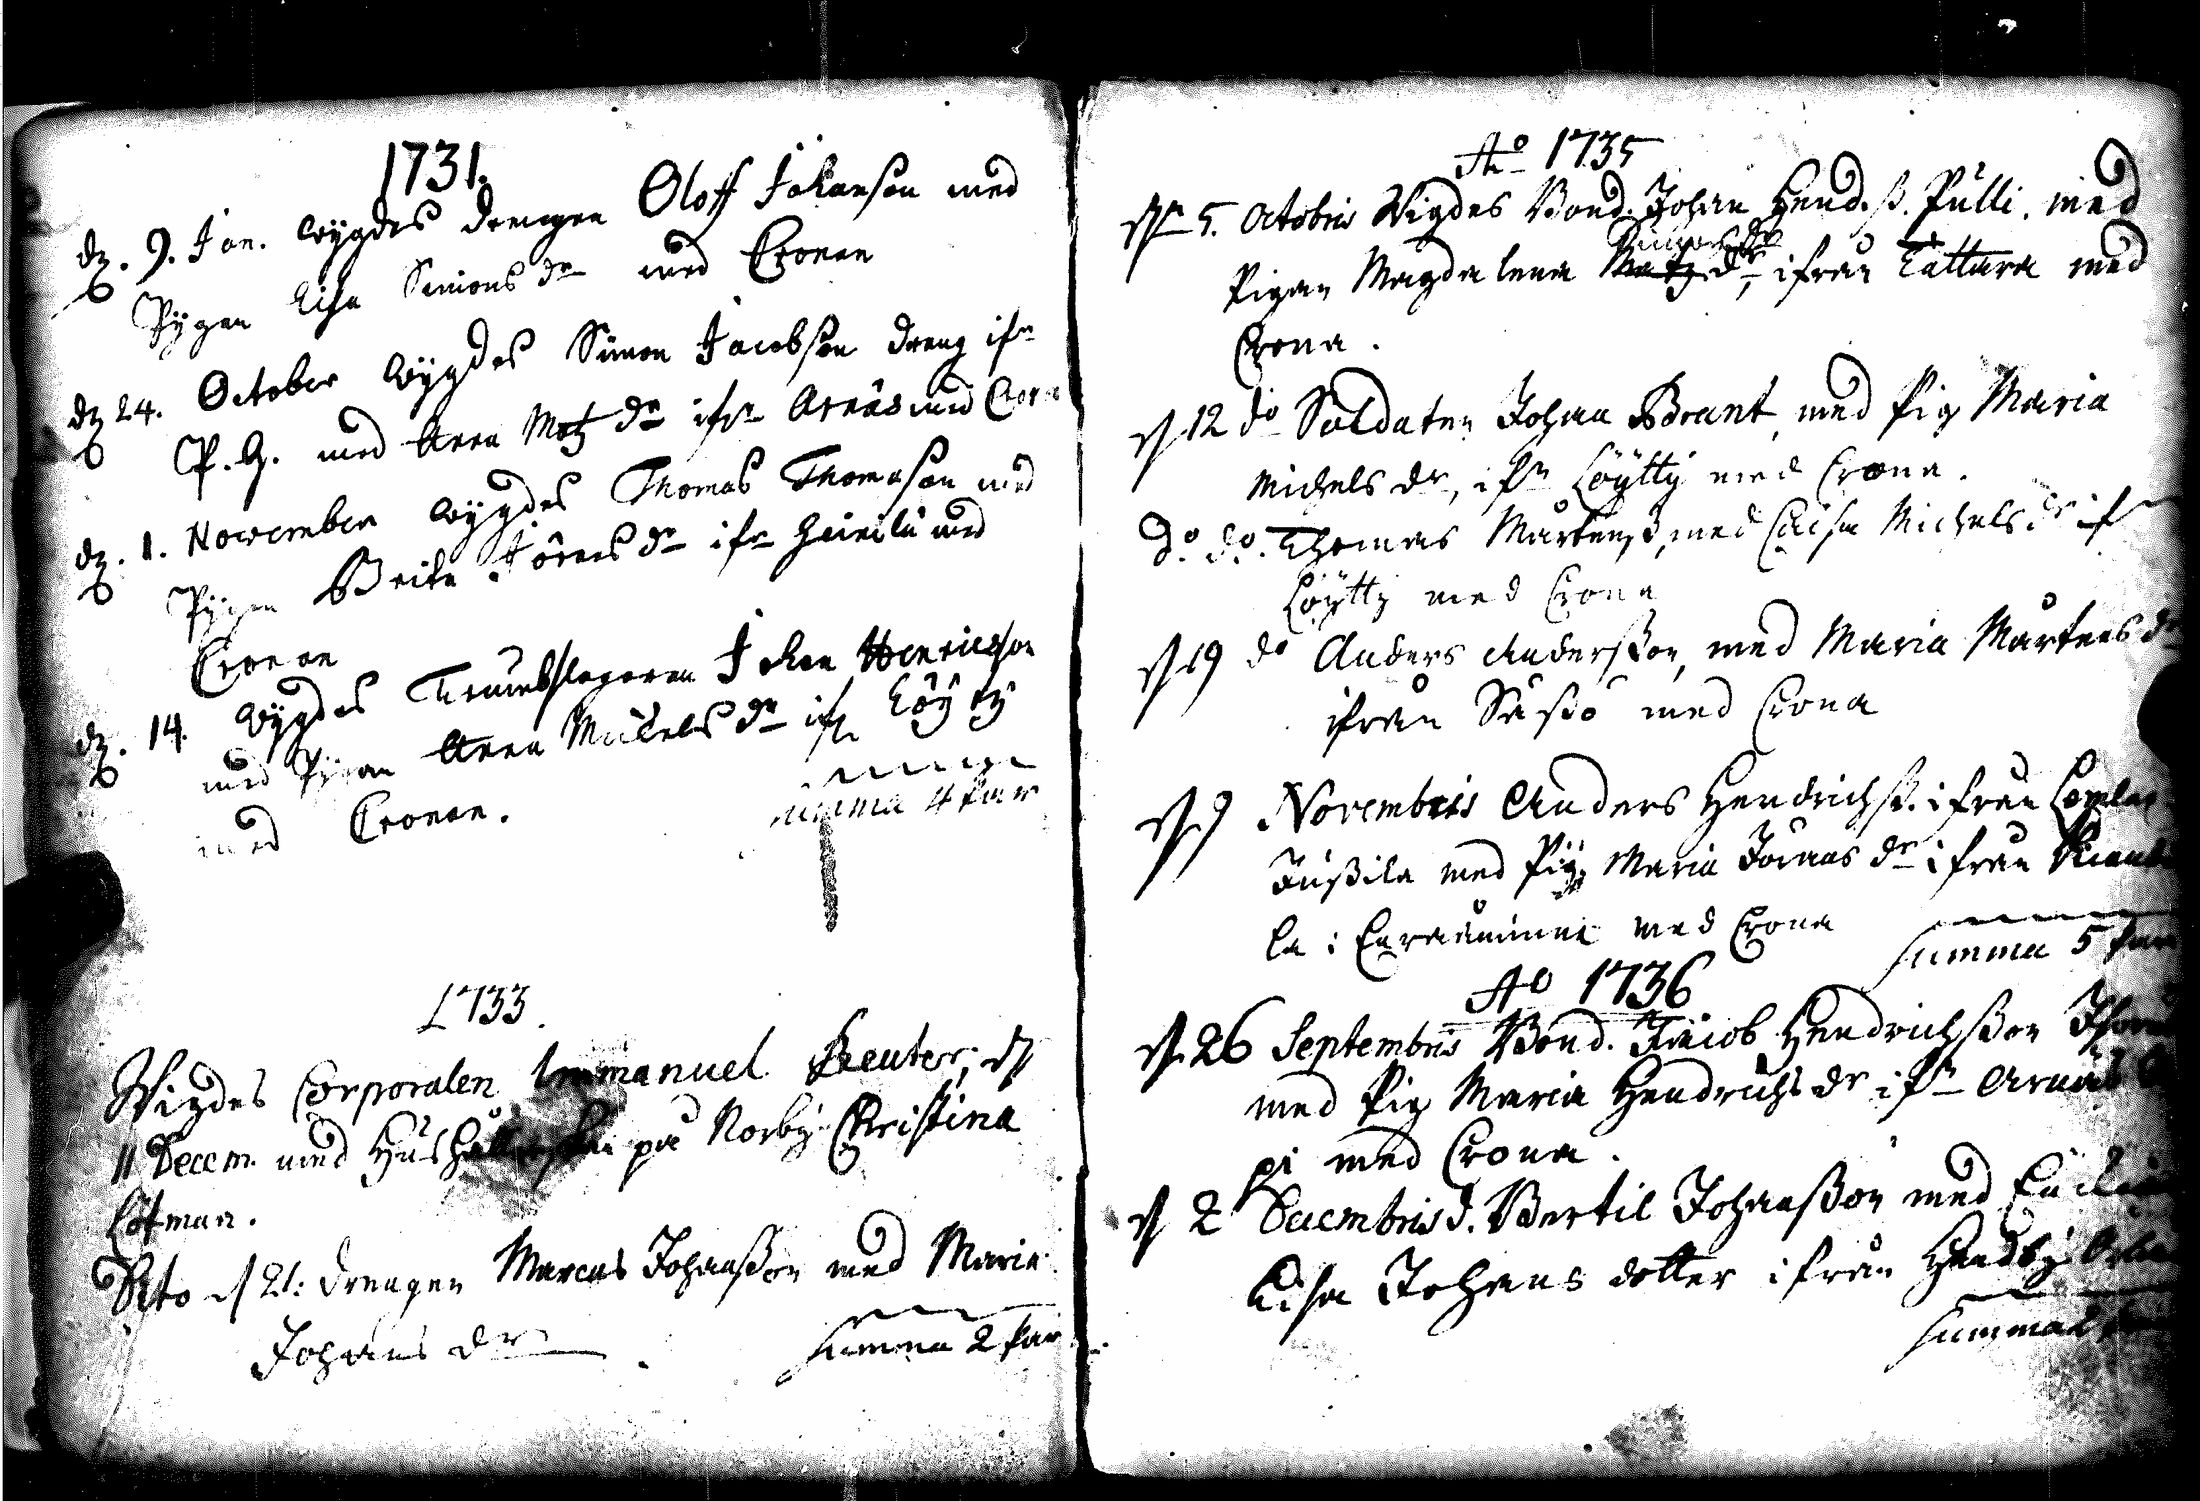 1731.
dz. 9. Jan. wÿgdes drengen Oloff Johanson med
Pÿgan Lisa Simons dr med Cronan
dz 24. October wÿgdes Simon Jacobson dreng ifr
P. G. med Anna Matz dr ifr Arnäs med Crona
dz. 1. November wÿgdes Thomas Thomason med
Pÿgan Brita Jörens dr ifr med
Cronan
dz. 14. wÿgdes Trumbslagaren Johan Henricson
med Pÿgan Anna Mickels dr ifr Löÿty
med Cronan.
summa 4 Par
1733.
Wigdes Corporalen Immanuel Reuter, d
11 Decem. med Hushållerskan på Norby Christina
Lötman.
Dito d 21: drengen Marcus Johanßon med Maria
Johans dr
summa 2 Par
Ao 1735
d 5. Octobris Wigdes Bond. Johan Hend.ß. Pulli, med
Pigan Magdalena Matz dr, ifrån Tattara med
Crona.
d 12 do Soldaten Johan Brant, med Pig Maria
Michels dr, ifr Löÿtty med Crona.
do do. Thomas Mårtenß, med Caisa Michels dr ifr
Löÿtty med Crona
d 19 do Anders Anderßon, med Maria Mårtens dr
ifrån Säßö med Crona
d 9 Novembris Anders Hendrichß. ifrån
Jußila med Pig Maria Jönas dr ifrån
la i med Crona
summa 5 Par
Ao 1736
d. 26 Septembris Bond. Jacob Hendrichßon
med Pig Maria Hendrichs dr ifr Arnäs
pi med Crona.
d 2 Decembris d. Bertil Johanßon med
Lisa Johans dotter ifrån
summa 2